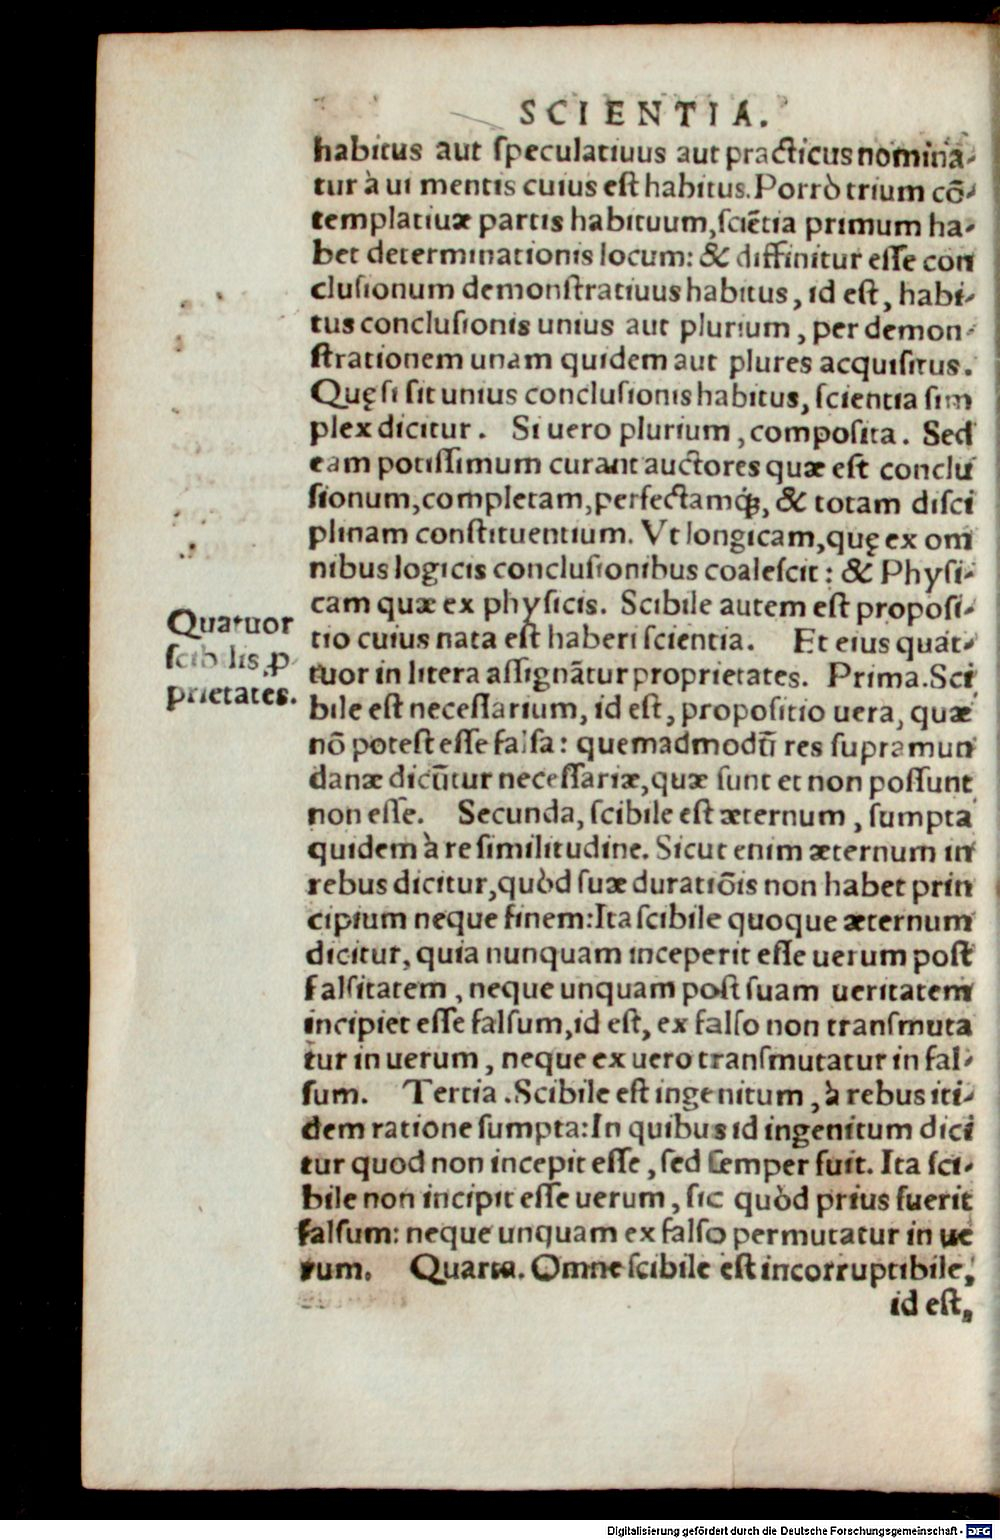 SCIENTIA.
habitus aut ſpeculatiuus aut practicus nomina-
tur à ui mentis cuius eſt habitus. Porrò trium cō-
templatiuæ partis habituum, ſciētia primum ha-
bet determinationis locum: & diffinitur eſſe con
cluſionum demonſtratiuus habitus, id eſt, habi-
tus concluſionis unius aut plurium, per demon-
ſtrationem unam quidem aut plures acquiſitus.
Quę ſi ſit unius concluſionis habitus, ſcientia ſim
plex dicitur. Si uero plurium, compoſita. Sed
eam potiſſimum curant auctores quæ eſt conclu
ſionum, completam, perfectamq́;, & totam diſci
plinam conſtituentium. Vt longicam, quę ex om
nibus logicis concluſionibus coaleſcit: & Phyſi-
cam quæ ex phyſicis. Scibile autem eſt propoſi-
tio cuius nata eſt haberi ſcientia. Et eius quat-
tuor in litera aſſignātur proprietates. Prima. Sci
bile eſt neceſſarium, id eſt, propoſitio uera, quæ
nō poteſt eſſe falſa: quemadmodū res ſupramun
danæ dicūtur neceſſariæ, quæ ſunt et non poſſunt
non eſſe. Secunda, ſcibile eſt æternum, ſumpta
quidem à re ſimilitudine. Sicut enim æternum in
rebus dicitur, quòd ſuæ duratiōis non habet prin
cipium neque finem: Ita ſcibile quoque æternum
dicitur, quia nunquam inceperit eſſe uerum poſt
falſitatem, neque unquam poſt ſuam ueritatem
incipiet eſſe falſum, id eſt, ex falſo non tranſmuta
tur in uerum, neque ex uero tranſmutatur in fal-
ſum. Tertia. Scibile eſt ingenitum, à rebus iti-
dem ratione ſumpta: In quibus id ingenitum dici
tur quod non incepit eſſe, ſed ſemper fuit. Ita ſci-
bile non incipit eſſe uerum, ſic quòd prius fuerit
falſum: neque unquam ex falſo permutatur in ue
rum. Quarta. Omne ſcibile eſt incorruptibile,
id eſt,
Quatuor
ſcibilis ꝓ
prietates.
Digitalisierung gefördert durch die Deutsche Forschungsgemeinschaft - DFG